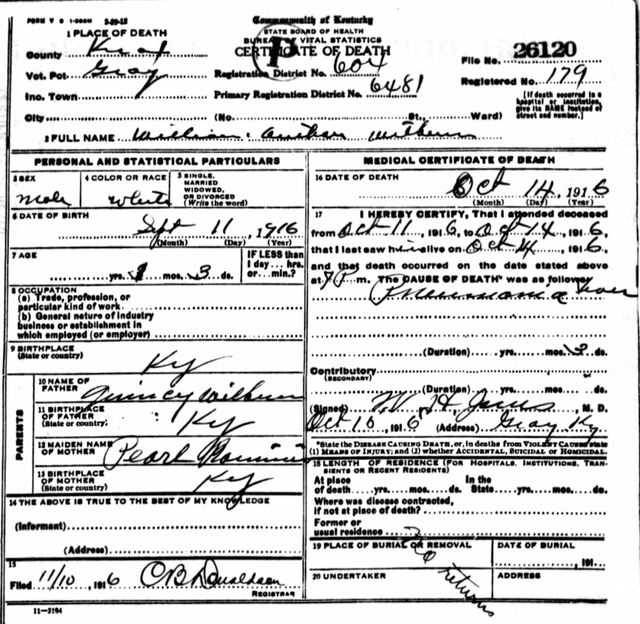 FORM V S 1-500M 3-29-15
Commonwealth of Kentucky
STATE BOARD OF HEALTH
BUREAU OF VITAL STATISTICS
CERTIFICATE OF DEATH
1 PLACE OF DEATH
County Knox
Vot. Pct Gray
Inc. Town
City (No. St., Ward)
P
Registration District No. 604
Primary Registration District No. 6481
File No. 26120
Registered No. 179
[If death occurred in a hospital or institution, give its NAME instead of street and number.]
2 FULL NAME William Arthur Wilburn
PERSONAL AND STATISTICAL PARTICULARS
3 SEX Male
4 COLOR OR RACE White
5 SINGLE, MARRIED WIDOWED, OR DIVORCED (Write the word)
6 DATE OF BIRTH Sept 11, 1916
(Month) (Day) (Year)
7 AGE yrs. 1 mos. 3 ds.
IF LESS than 1 day... hrs. or... min.?
8 OCCUPATION
(a) Trade, profession, or particular kind of work
(b) General nature of industry business or establishment in which employed (or employer)
9 BIRTHPLACE (State or country) Ky
PARENTS
10 NAME OF FATHER Quincy Wilburn
11 BIRTHPLACE OF FATHER (State or country) Ky
12 MAIDEN NAME OF MOTHER Pearl
13 BIRTHPLACE OF MOTHER (State or country) Ky
14 THE ABOVE IS TRUE TO THE BEST OF MY KNOWLEDGE
(Informant)
(Address)
15
Filed 11/10, 1916 C B Donaldson
REGISTRAR
11-3184
MEDICAL CERTIFICATE OF DEATH
16 DATE OF DEATH Oct 14, 1916
(Month) (Day) (Year)
17 I HEREBY CERTIFY, That I attended deceased
from Oct 11, 1916, to Oct 14, 1916,
that I last saw him alive on Oct 14, 1916,
and that death occurred on the date stated above
at m. The CAUSE OF DEATH* was as follows
Pneumonia
(Duration) yrs. mos. 3 ds.
Contributory
(SECONDARY)
(Duration) yrs. mos. ds.
(Signed) W. H. M. D.
Oct 10, 1916 (Address) Gray Ky
*State the DISEASE CAUSING DEATH, or, in deaths from VIOLENT CAUSES state (1) MEANS OF INJURY; and (2) whether ACCIDENTAL, SUICIDAL or HOMICIDAL.
18 LENGTH OF RESIDENCE (FOR HOSPITALS, INSTITUTIONS, TRANSIENTS OR RECENT RESIDENTS)
At place of death yrs. mos. ds. In the State yrs. mos. ds.
Where was disease contracted, if not at place of death?
Former or usual residence
19 PLACE OF BURIAL OR REMOVAL
DATE OF BURIAL , 191
No returns
20 UNDERTAKER
ADDRESS